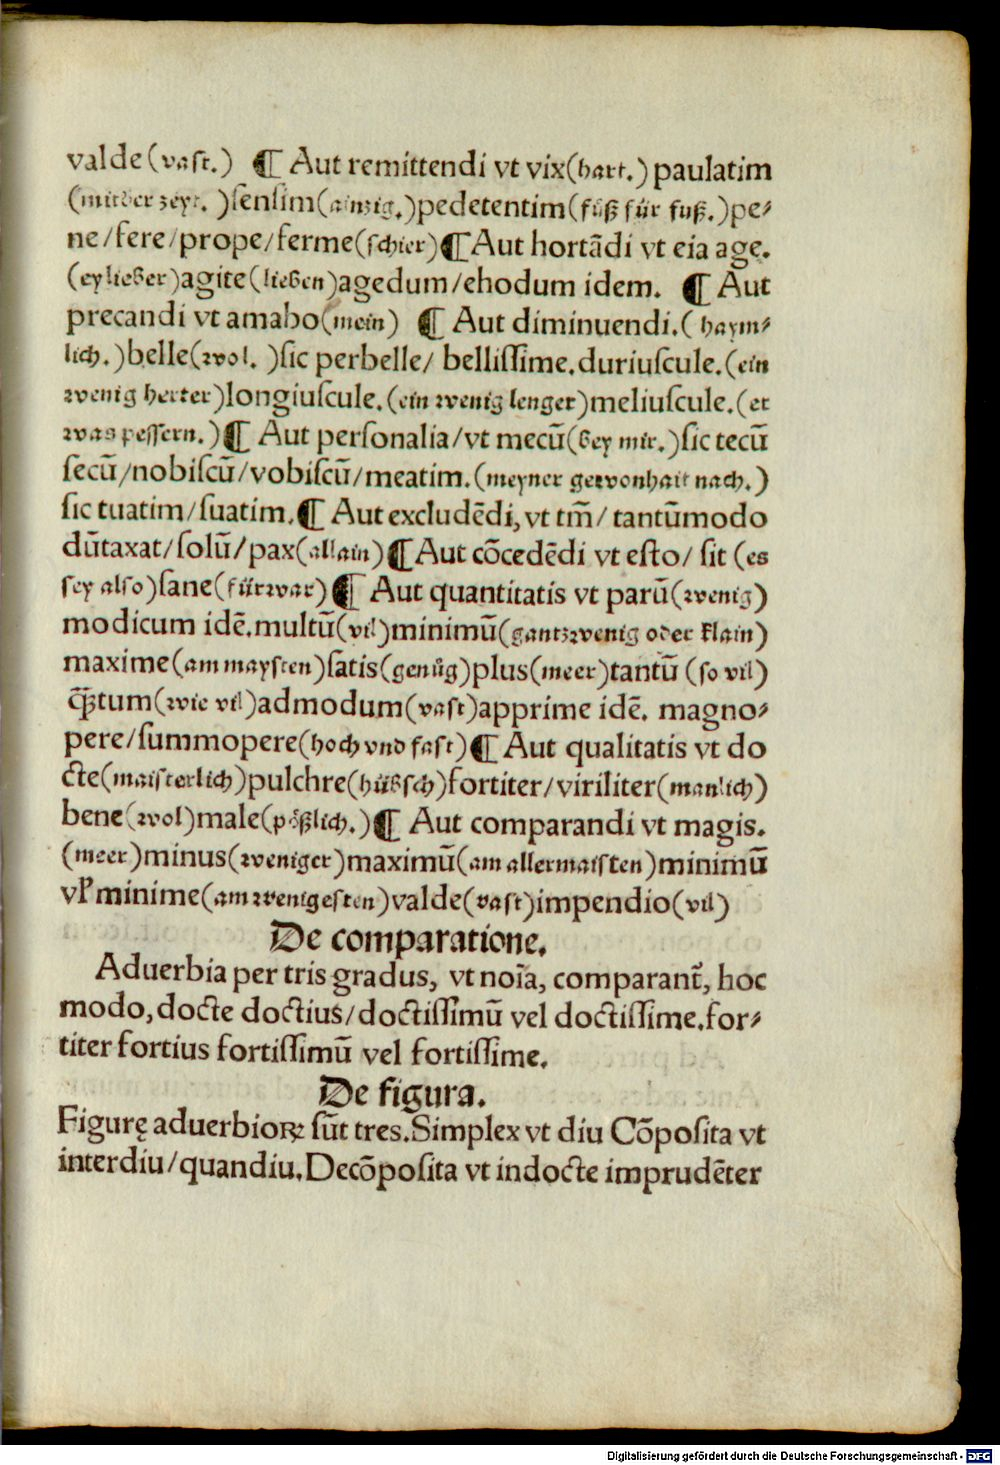 valde (vast.) ¶ Aut remittendi vt vix (hart.) paulatim
(mitber zeyt. ) ſenſim (ainzig.) pedetentim (fůß für fuß.) pe⸗
ne / fere / prope / ferme (schier) ¶ Aut hortādi vt eia age.
(ey lieber) agite (lieben) agedum / ehodum idem. ¶ Aut
precandi vt amabo (mein) ¶ Aut diminuendi. ( haym⸗
lich.) belle (wol. ) ſic perbelle / belliſſime. duriuſcule. (ein
wenig herter) longiuſcule. (ein wenig lenger) meliuſcule. (et
was pessern.) ¶ Aut perſonalia / vt mecū (bey mir.) ſic tecū
ſecū / nobiſcū / vobiſcū / meatim. (meyner gewonhait nach.)
ſic tuatim / ſuatim. ¶ Aut excludēdi, vt tm̄ / tantūmodo
dūtaxat / ſolū / pax (allain) ¶ Aut cōcedēdi vt eſto / ſit (es
sey also) ſane (fürwar) ¶ Aut quantitatis vt parū (wenig)
modicum idē. multū (vil) minimū (gantz wenig oder klain)
maxime (am maysten) ſatis (genůg) plus (meer) tantū (so vil)
q̄ꝫtum (wie vil) admodum (vast) apprime idē. magno⸗
pere / ſummopere (hoch vnd fast) ¶ Aut qualitatis vt do
cte (maisterlich) pulchre (hübsch) fortiter / viriliter (manlich)
bene (wol) male (pößlich.) ¶ Aut comparandi vt magis.
(meer) minus (weniger) maximū (am allermaisten) minimū
vl̓ minime (am wenigesten) valde (vast) impendio (vil)
De comparatione.
Aduerbia per tris gradus, vt noīa, comparant᷑, hoc
modo, docte doctius / doctiſſimū vel doctiſſime. for⸗
titer fortius fortiſſimū vel fortiſſime.
De figura.
Figurę aduerbioꝝ ſūt tres. Simplex vt diu Cōpoſita vt
interdiu / quandiu. Decōpoſita vt indocte imprudēter
Digitalisierung gefördert durch die Deutsche Forschungsgemeinschaft - DFG